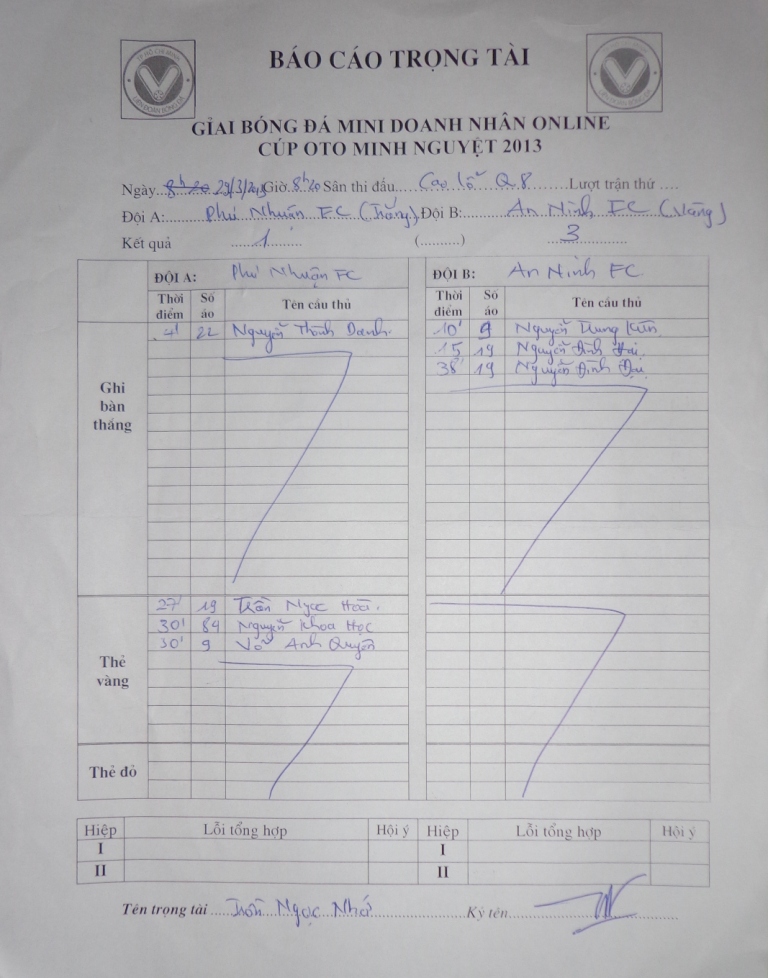 BÁO CÁO TRỌNG TÀI
GIẢI BÓNG ĐÁ MINI DOANH NHÂN ONLINE
CÚP OTO MINH NGUYỆT 2013
Ngày 29/3/2013 Giờ: 8h20 Sân thi đấu: Cao Lỗ Q8 Lượt trận thứ
Đội A: Phú Nhuận FC (Trắng) Đội B: An Ninh FC (Vàng)
Kết quả 1 (..........) 3
ĐỘI A: Phú Nhuận FC ĐỘI B: An Ninh FC
Thời điểm Số áo Tên cầu thủ Thời điểm Số áo Tên cầu thủ
Ghi bàn thắng
4' 22 Nguyễn Thành Danh 10' 9 Nguyễn Trung
15 19 Nguyễn Đình
38' 19 Nguyễn Đình Đại
Thẻ vàng
27' 19 Trần Ngọc
30' 84 Nguyễn Khoa Học
30' 9 Võ Anh Quyền
Thẻ đỏ
Hiệp Lỗi tổng hợp Hội ý Hiệp Lỗi tổng hợp Hội ý
I I
II II
Tên trọng tài Trần Ngọc Nhớ Ký tên